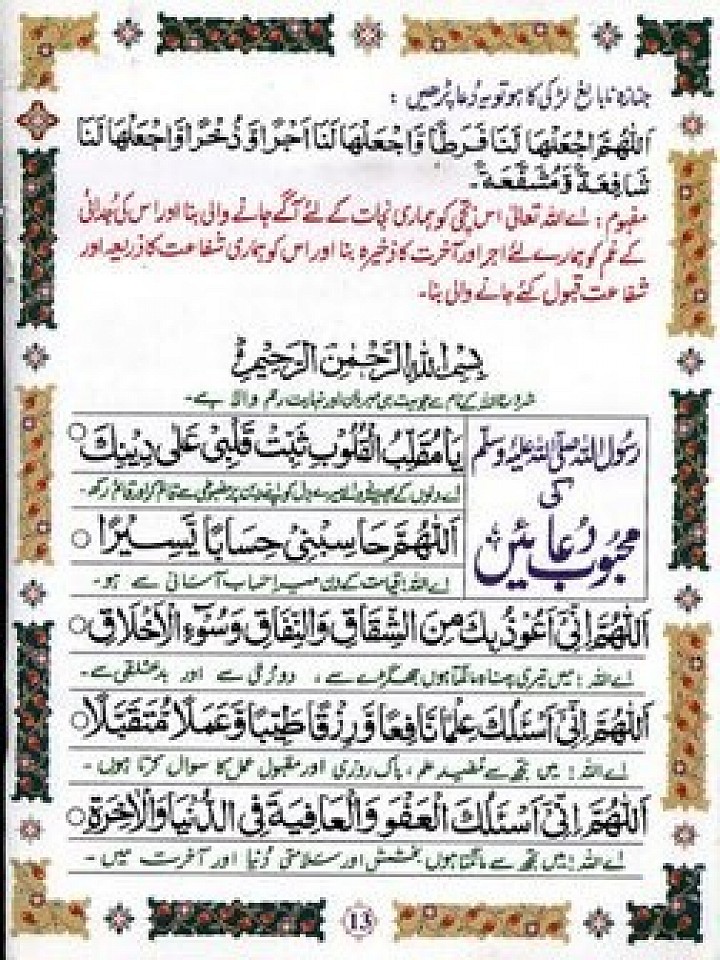 جنازہ نابالغ لڑکی کا ہو تو یہ دُعا پڑھیں :
اَللّٰهُمَّ اجْعَلْهَا لَنَا فَرَطًا وَّاجْعَلْهَا لَنَا اَجْرًا وَّذُخْرًا وَّاجْعَلْهَا لَنَا
شَافِعَةً وَّمُشَفَّعَةً ۔
مفہوم : اے اللہ تعالیٰ اس بچی کو ہماری نجات کے لئے آگے جانے والی بنا اور اس کی جُدائی
کے غم کو ہمارے لئے اجر اور آخرت کا ذخیرہ بنا اور اس کو ہماری شفاعت کا ذریعہ اور
شفاعت قبول کئے جانے والی بنا۔
بِسْمِ اللّٰهِ الرَّحْمٰنِ الرَّحِيْمِ
شروع اللہ کے نام سے جو بہت ہی مہربان اور نہایت رحم والا ہے۔
رسول اللہ صلی اللہ علیہ وسلم
کی
محبوب دعائیں
يَا مُقَلِّبَ الْقُلُوْبِ ثَبِّتْ قَلْبِيْ عَلٰى دِيْنِكَ
اے دلوں کے پھیرنے والے میرے دل کو اپنے دین پر مضبوطی سے قائم کر اور قائم رکھ۔
اَللّٰهُمَّ حَاسِبْنِيْ حِسَابًا يَّسِيْرًا
اے اللہ! قیامت کے دن میرا حساب آسانی سے ہو۔
اَللّٰهُمَّ اِنِّيْ اَعُوْذُ بِكَ مِنَ الشِّقَاقِ وَالنِّفَاقِ وَسُوْٓءِ الْاَخْلَاقِ
اے اللہ! میں تیری پناہ مانگتا ہوں جھگڑے سے ، دوزخی سے اور بدخلقی سے۔
اَللّٰهُمَّ اِنِّيْ اَسْئَلُكَ عِلْمًا نَّافِعًا وَّرِزْقًا طَيِّبًا وَّعَمَلًا مُّتَقَبَّلًا
اے اللہ! میں تجھ سے مفید علم ، پاک روزی اور مقبول عمل کا سوال کرتا ہوں۔
اَللّٰهُمَّ اِنِّيْ اَسْئَلُكَ الْعَفْوَ وَالْعَافِيَةَ فِي الدُّنْيَا وَالْاٰخِرَةِ
اے اللہ! میں تجھ سے مانگتا ہوں بخشش اور سلامتی دُنیا اور آخرت میں ۔
13